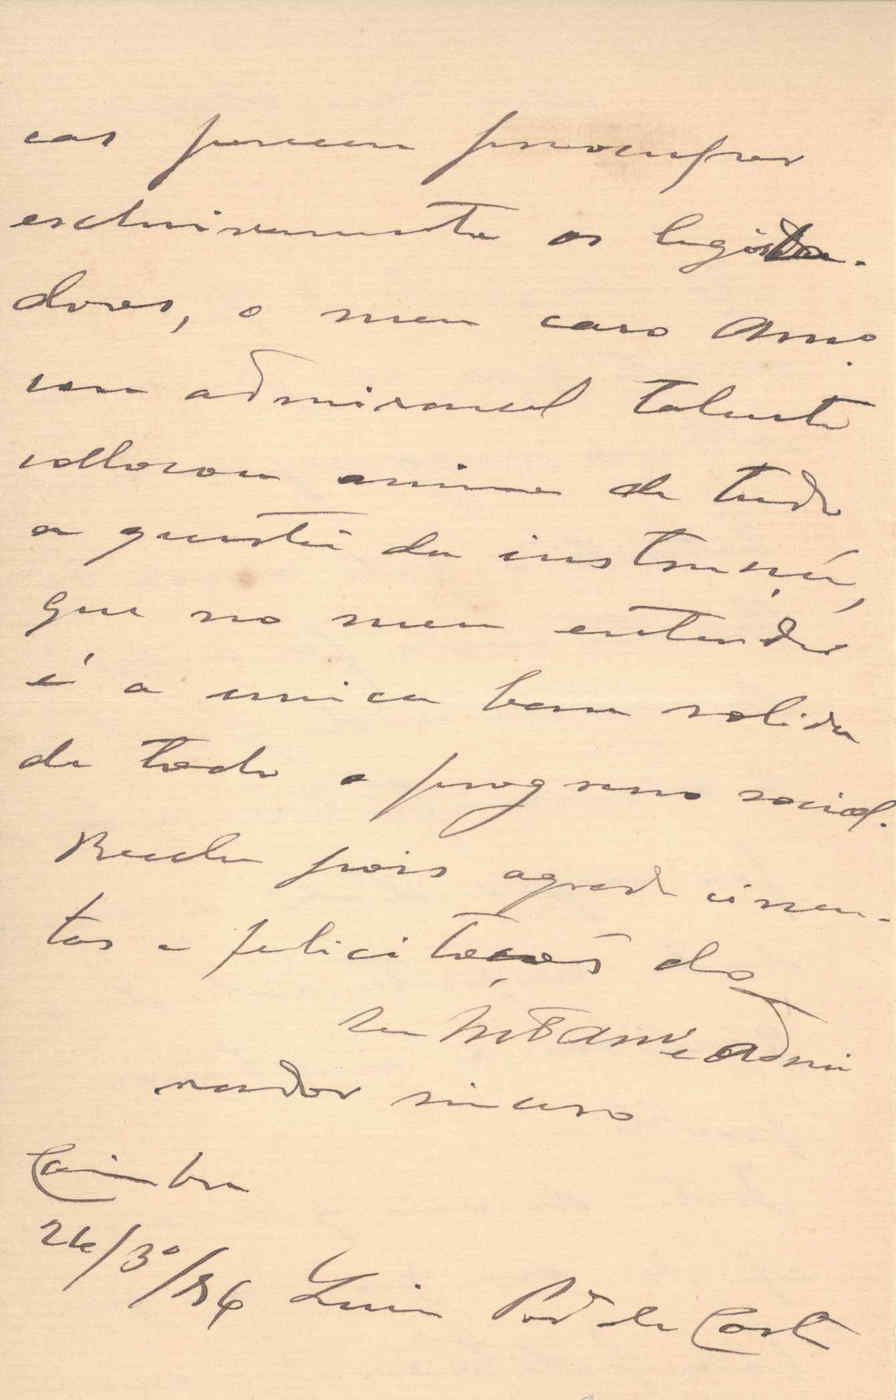 cas parecem preocupar
exclusivamente os legisla-
dores, o meu caro Amº
com admiravel talento
collocou acima de tudo
a questão da instrucção,
que no meu entender
é a unica base solida
de todo o progresso social.
Receba pois agradecimen-
tos e felicitações do
seu Mtº Amº e admi
rador sincero
Coimbra
24/3º/86 Luiz da Costa